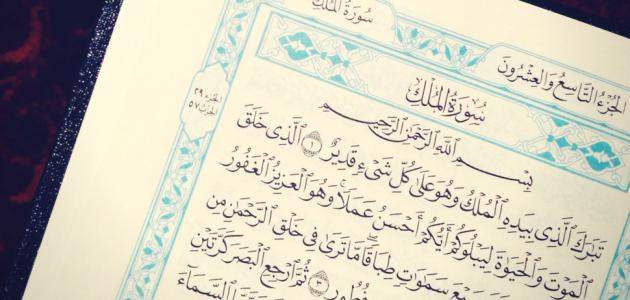 الجُزْءُ التَّاسِعُ وَالعِشْرُونَ
سُورَةُ المُلْكِ
الجزء ٢٩
الحزب ٥٧
سُورَةُ المُلْكِ
بِسْمِ ٱللَّهِ ٱلرَّحْمَٰنِ ٱلرَّحِيمِ
تَبَٰرَكَ ٱلَّذِى بِيَدِهِ ٱلْمُلْكُ وَهُوَ عَلَىٰ كُلِّ شَىْءٍ قَدِيرٌ ١ ٱلَّذِى خَلَقَ
ٱلْمَوْتَ وَٱلْحَيَوٰةَ لِيَبْلُوَكُمْ أَيُّكُمْ أَحْسَنُ عَمَلًا ۚ وَهُوَ ٱلْعَزِيزُ ٱلْغَفُورُ
سَبْعَ سَمَٰوَٰتٍ طِبَاقًا ۖ مَّا تَرَىٰ فِى خَلْقِ ٱلرَّحْمَٰنِ مِن
فُطُورٍ ٣ ثُمَّ ٱرْجِعِ ٱلْبَصَرَ كَرَّتَيْنِ
ٱلسَّمَآءَ